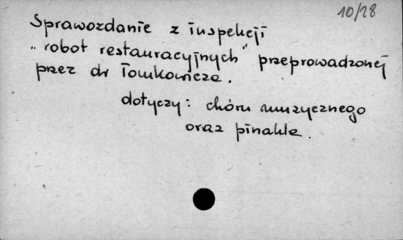 10/28
Sprawozdanie z inspekcji
„robot restauracyjnych" przeprowadzonej
przez dr Tomkowicza.
dotyczy: chóru muzycznego
oraz pinakle.